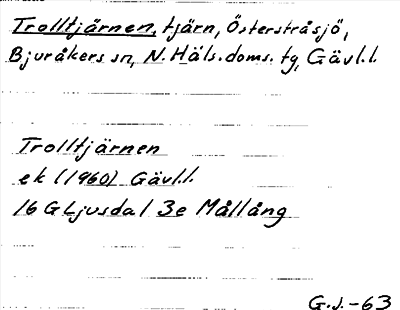 Trolltjärnen, tjärn, Österstråsjö,
Bjuråkers sn, N. Häls. doms. tg, Gävl.l.
Trolltjärnen
ek (1960) Gävl.l.
16 G Ljusdal 3e Mållång
G.J.-63